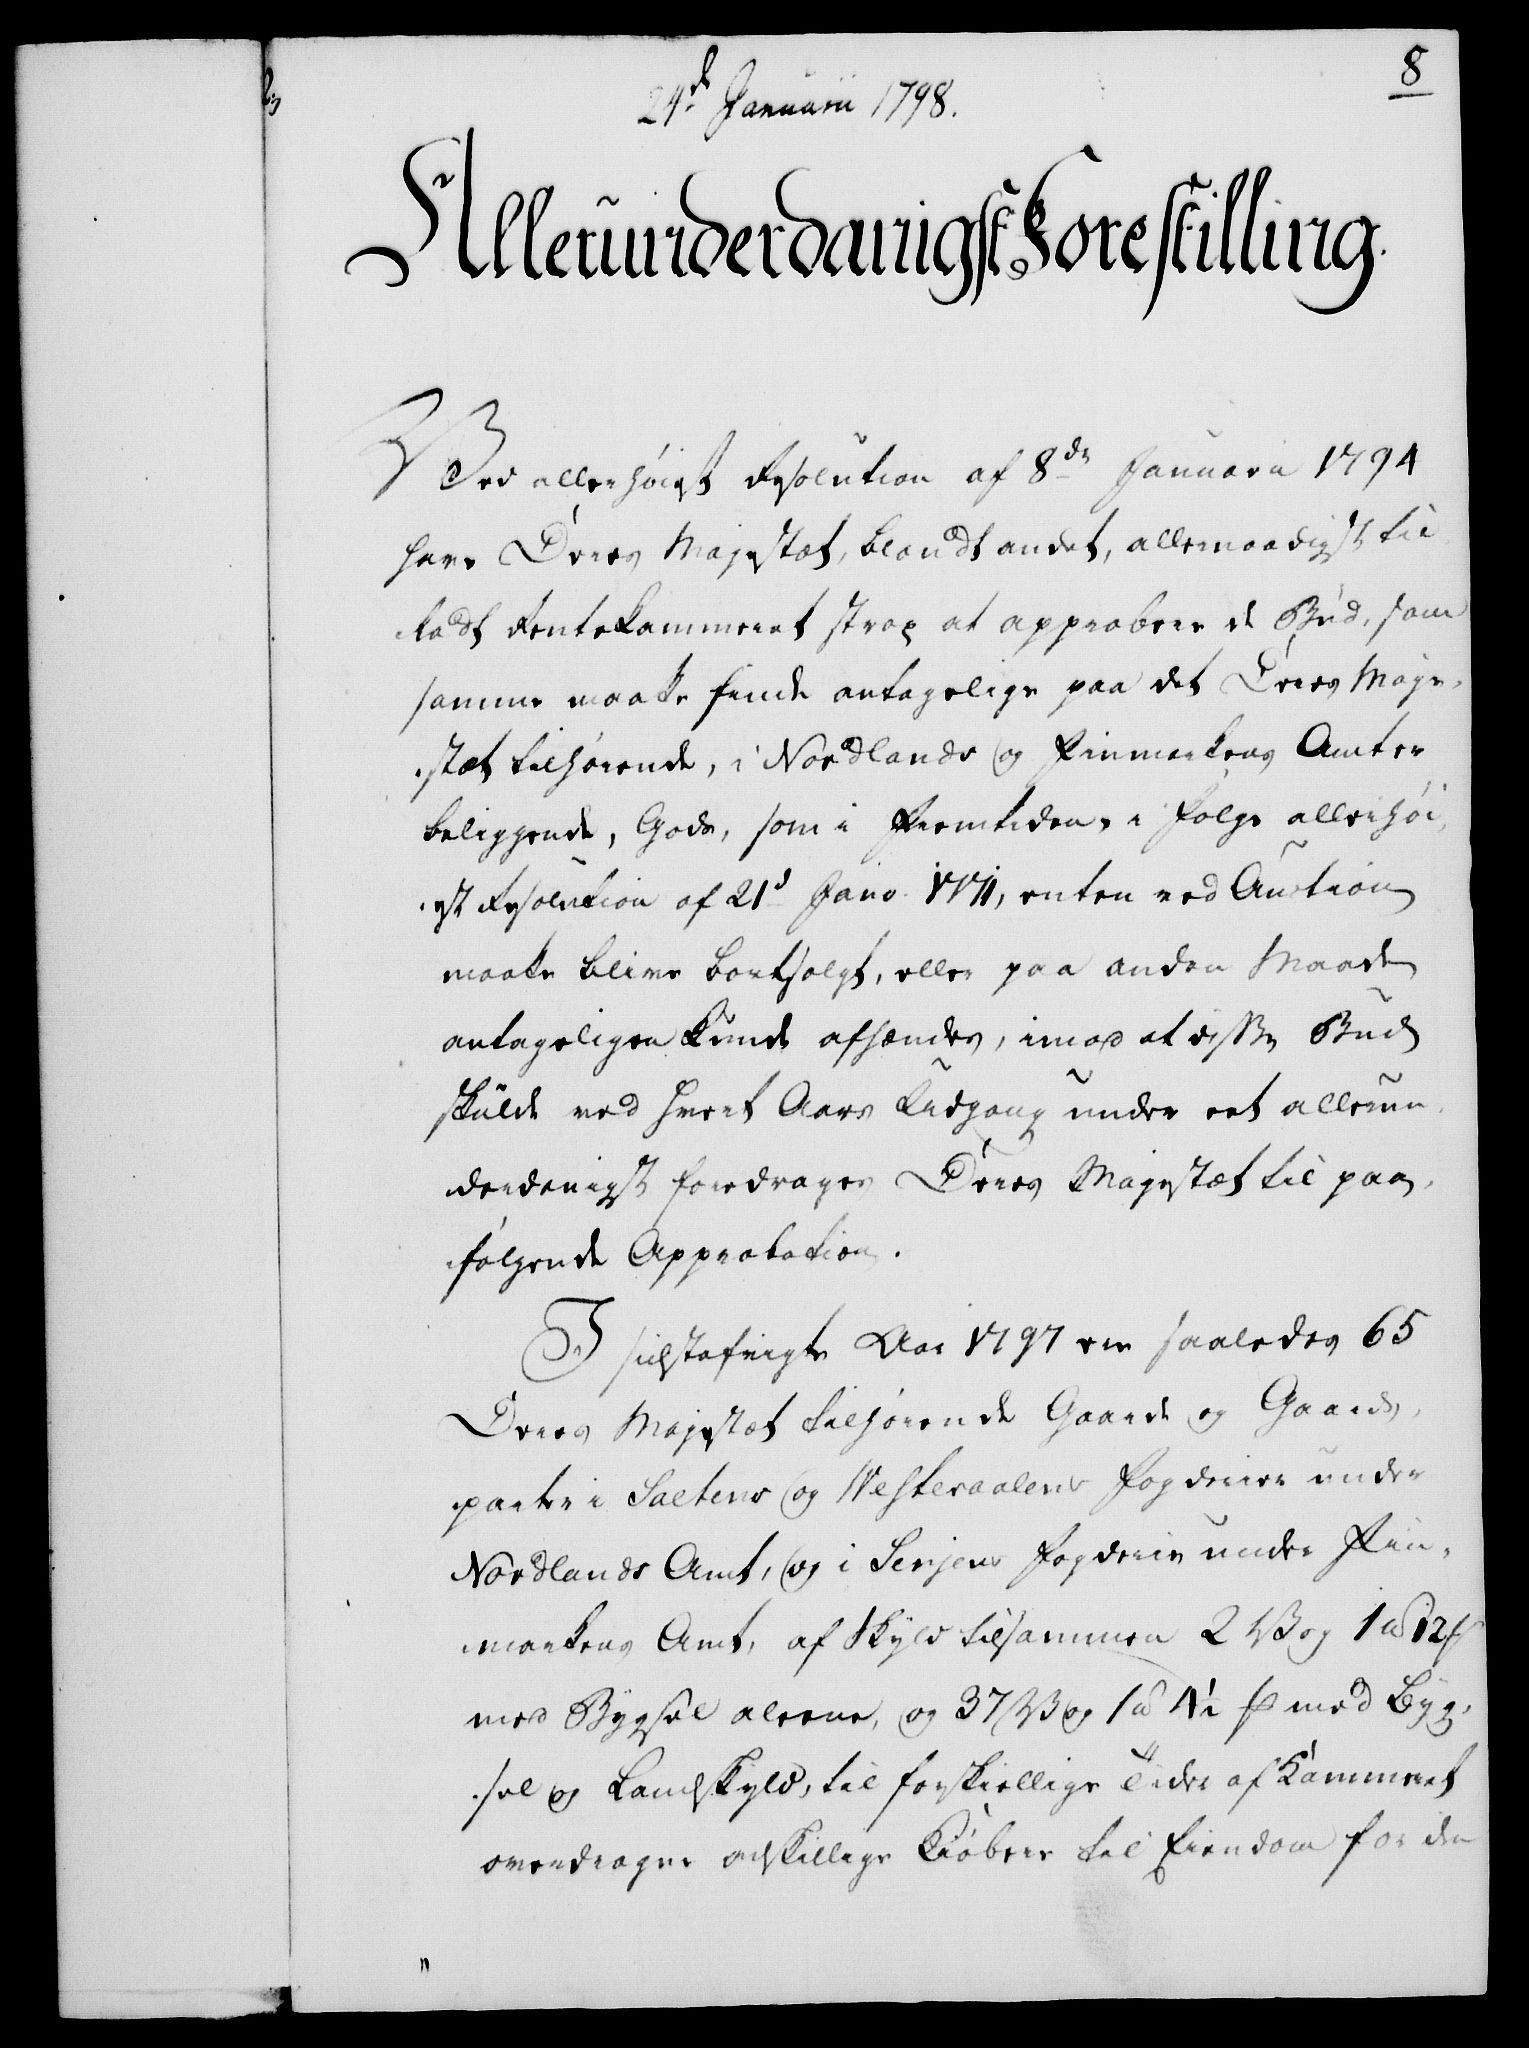 8
24d Januarii 1798.
Allerunderdanigst Forestilling.
Ved allerhøiest Resolution af 8de Januarii 1794
have Deres Majestæt, blandt andet, allernaadigst til
ladt Rentekammeret strax at approbere de Bud, som
samme maatte finde antagelige paa det Deres Maje-
stæt tilhørende, i Nordlands og Finmarkens Amter
beliggende, Gods, som i Fremtiden, i Følge allerhøi-
est Resolution af 21d Janv. 1771, enten ved Auction
maatte blive bortsolgt, eller paa anden Maade
antageligen kunde afhændes, imod at disse Bud
skulde ved hvert Aars Udgang under eet allerun-
derdanigst foredrages Deres Majestæt til paa-
følgende Approbation.
I sidstafvigte Aar 1797 ere saaledes 65
Deres Majestæt tilhørende Gaarde og Gaards-
parter i Saltens og Westeraalens Fogderier under
Nordlands Amt, og i Senjens Fogderie under Fin-
markens Amt, af Skyld tilsammen 2 Wog 1 12
med Bygsel alene, og 37 Wog 1 4½ med Byg-
sel og Landskyld, til forskiellige Tider af Kammeret
overdragne adskillige Kiøbere til Eiendom for den